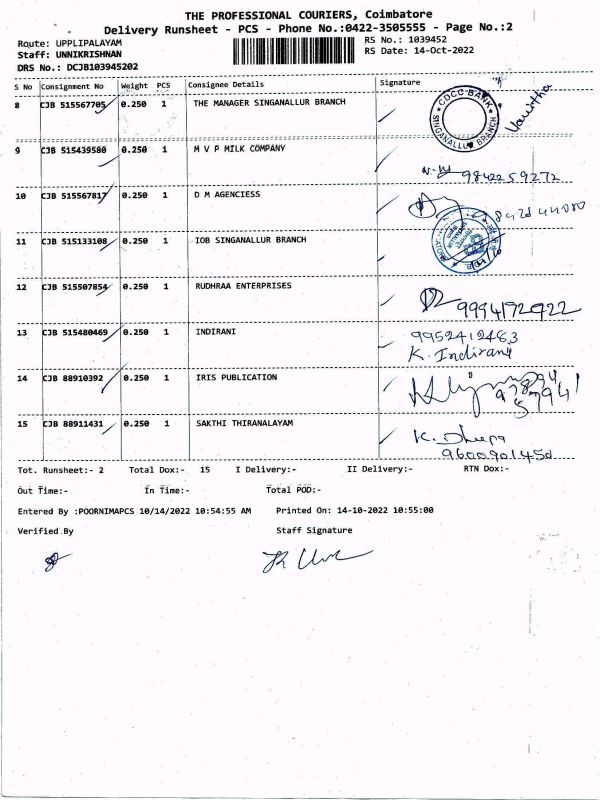 THE PROFESSIONAL COURIERS, Coimbatore
Delivery Runsheet - PCS - Phone No.:0422-3505555 - Page No.:2
Route: UPPLIPALAYAM
RS No.: 1039452
Staff: UNNIKRISHNAN
RS Date: 14-Oct-2022
DRS No.: DCJB103945202
S No Consignment No Weight PCS Consignee Details Signature
8 CJB 515567705 0.250 1 THE MANAGER SINGANALLUR BRANCH
CDCC BANK
SINGANALLUR BRANCH
9 CJB 515439580 0.250 1 M V P MILK COMPANY
9842259272
10 CJB 515567817 0.250 1 D M AGENCIESS
11 CJB 515133108 0.250 1 IOB SINGANALLUR BRANCH
12 CJB 515507854 0.250 1 RUDHRAA ENTERPRISES
13 CJB 515480469 0.250 1 INDIRANI
9952412463
K. Indirani
14 CJB 88910392 0.250 1 IRIS PUBLICATION
15 CJB 88911431 0.250 1 SAKTHI THIRANALAYAM
9600901450
Tot. Runsheet:- 2 Total Dox:- 15 I Delivery:- II Delivery:- RTN Dox:-
Out Time:- In Time:- Total POD:-
Entered By :POORNIMAPCS 10/14/2022 10:54:55 AM Printed On: 14-10-2022 10:55:00
Verified By Staff Signature